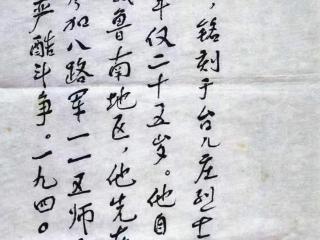 ，铭刻于台儿庄烈士
年仅二十五岁。他自
鲁南地区，他先在
参加八路军一一五师
严酷斗争。一九四〇